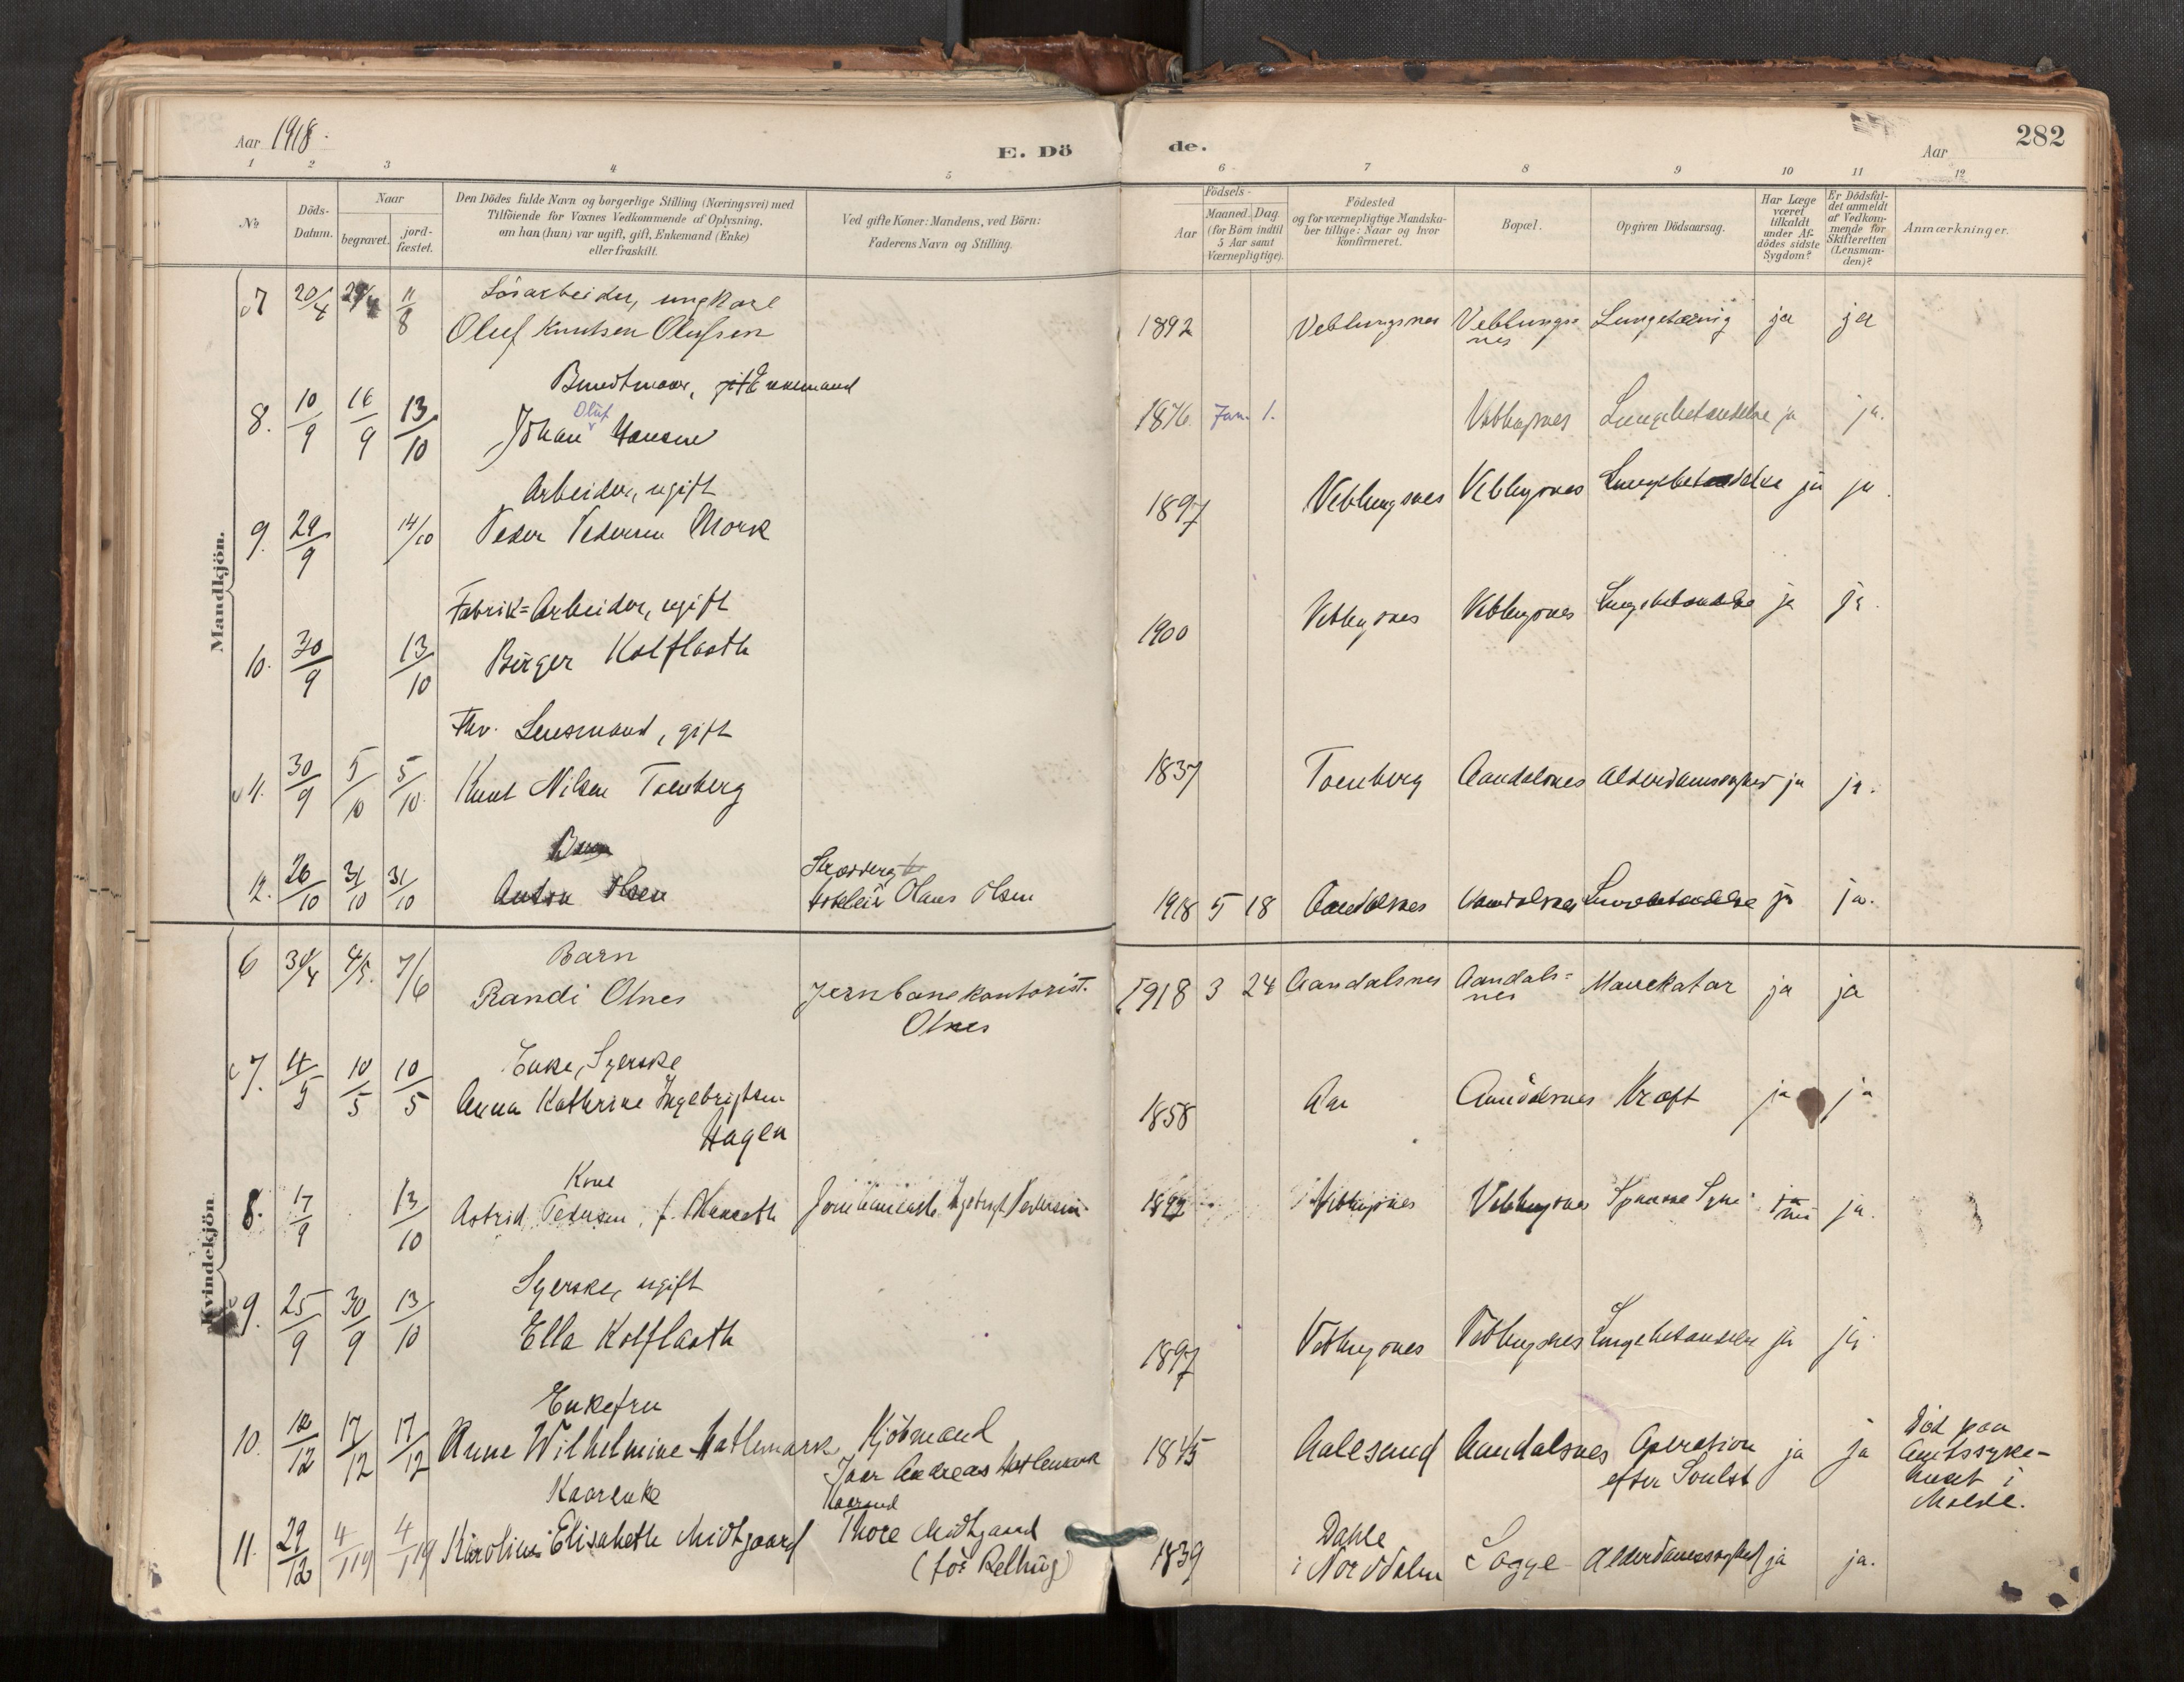 Aar 1918.
E. Döde.
Aar
282
1 2 3 4 5 6 7 8 9 10 11 12
No
Döds-Datum.
Naar
begravet.
jord-fæstet.
Den Dödes fulde Navn og borgerlige Stilling (Næringsvei) med
Tilföiende for Voxnes Vedkommende af Oplysning,
om han (hun) var ugift, gift, Enkemand (Enke)
eller fraskilt.
Ved gifte Koner: Mandens, ved Börn:
Faderens Navn og Stilling.
Födsels-
Aar
Maaned. Dag.
(for Börn indtil
5 Aar samt
Værnepligtige).
Födested
og for værnepligtige Mandska-
ber tillige: Naar og hvor
konfirmeret.
Bopæl.
Opgiven Dödsaarsag.
Har Læge
været
tilkaldt
under Af-
dödes sidste
Sygdom?
Er Dödsfal-
det anmeldt
af Vedkom-
mende for
Skifteretten
(Lensman-
den)?
Anmærkninger.
Mandkjön.
Lösarbeider, ungkarl
7 20/4 11/8 Oluf Knutsen Olufsen 1892 Veblungsnes Veblungs=
nes Lungetæring ja ja
Buntmaker, gift Enkemand
8. 10/9 16/9 13/10 Johan Oluf Hansen 1876 Jan. 1. Veblungsnes Lungebetændelse ja ja.
Arbeider, ugift
9. 29/9 14/10 Peder Pedersen Mork 1897 Veblungsnes Veblungsnes Lungebetændelse ja ja.
Fabrik=Arbeider, ugift
10. 30/9 13/10 Birger Kolflaath 1900 Veblungsnes Veblungsnes Lungebetændelse ja ja.
Fhv. Lensmand, gift
11. 30/9 5/10 5/10. Knut Nilsen Torvberg 1837 Torvberg Aandalsnes Alderdomssvaghed ja ja.
Barn
12. 26/10 31/10 31/10 Anton Olsen Olaus Olsen 1918 5 18 Aandalsnes Aandalsnes Lungebetændelse ja ja.
Kvindekjön
Barn
6 30/4 4/5. 7/6 Randi Olnes Jernbanekontorist.
Olnes 1918 3 24 Aandalsnes Aandals=
nes Mavekatar ja ja
Enke, Syerske
7. 4/5 10/5 10/5 Anna Kathrine Ingebrigtsen
Hagen 1858 Aandalsnes Kræft ja ja
Kone
8. 17/9 13/10 Astrid Pedersen, f. Ingebrigt Pedersen Veblungsnes Veblungsnes Spanske Syke ja.
Syerske, ugift
9. 25/9 30/9 13/10 Ella Kolflaath 1897 Veblungsnes Veblungsnes Lungebetændelse ja ja
Enkefru
10. 12/12 17/12 17/12 Anne Wilhelmine Hathemark Kjöbmand
Ivar Andreas Hathemark 1845 Aalesund Aandalsnes Operation
efter ja ja Död paa
Amtssyke-
huset i
Molde.
Kaarenke
11. 29/12 4/1 19 4/1 19 Karoline Elisabeth Midtgaard Kaarmand
Thore Midtgaard
(för 1839 Dahle
i Norddalen Sogge Alderdomssvaghed ja ja.